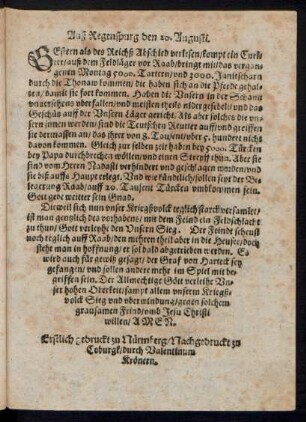 Auß Regenspurg den 20. Augusti.
GEstern als des Reichß Abschied verlesen/kompt ein Curir
vor Raab/bringt mit/das vergan-
genen Montag 5000. Tartern/und 3000. Janitscharn
durch die Thonaw kommen/die haben sich an die Pferde gehal-
ten/damit sie fort kommen. Haben die Unsern in der Schantz
unversehens uberfallen/und meisten theils nidergesebelt/und das
Geschütz auff der Unsern Läger gericht. Als aber solches die un-
sern innen worden/sind die Teutschen Reutter auff/und greiffen
sie dermassen an/das ihrer 8. Tausent/uber 5. hundert nicht
davon kommen. Gleich zur selben zeit haben bey 5000. Türcken
bey Papa durchbrechen wöllen/und einen Streyff thun. Aber sie
sind vom Herrn Nadasti verhindert und geschlagen worden/und
sie biß auffs Haupt erlegt. Und wie für der Be-
legerung Raab/auff 20. Tausent Türcken umbkommen sein.
Gott geb weitter sein Gnad.
Dieweil sich nun unser Kriegßvolck teglich starck versamlet/
ist man gentzlich des vorhabens/mit dem Feind ein Feldschlacht
zu thun/Gott verleyhe den Unsern Sieg. Der Feind scheust
noch teglich auff Raab/den mehrern theil aber in die Heuser/doch
steht man in hoffnung/er sol bald abgetrieben werden. Es
wird auch für gewiß gesagt/der Graf von Hardeck sey
gefangen/und sollen andere mehr im Spiel mit be-
griffen sein. Der Allmechtige Gott verleihe Un-
ser hohen Oberkeit/sampt allem unserm Kriegß-
volck Sieg und uberwindung/gegen solchem
grausamen Feind/umb Jesu Christi
willen/AMEN.
Erstlich gedruckt zu Nürmberg/Nachgedruckt zu
Coburgk/durch Valentinum
Krönern.